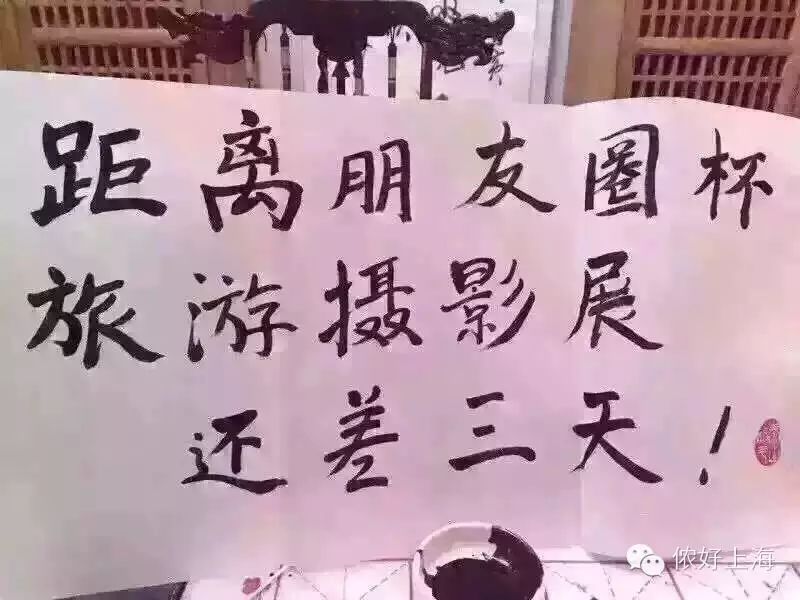 距离朋友圈杯
旅游摄影展
还差三天！
侬好上海